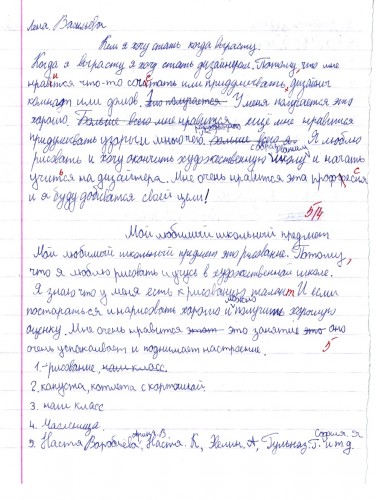 Лена Васильева
Кем я хочу стать когда вырасту.
Когда я вырасту я хочу стать дизайнером. Потому, что мне
нравится что-то сочетать или придумывать, дизайн
комнат или домов. Это получается У меня получается это
хорошо. Больше всего мне нравится ещё мне нравится
придумывать узоры и мн. Я люблю
рисовать и хочу закончить художественную школу и начать
учиться на дизайнера. Мне очень нравится эта профессия
и я буду добиватся своей цели!
5/4
Мой любимый школьный предмет
Мой любимой школьной предмет это рисование. Потому,
что я люблю рисовать и учусь в художественной школе.
Я знаю что у меня есть к рисованию талант И если
постараться и нарисовать хорошо и можно получить хорошую
оценку. Мне очень нравится это занятие это оно
очень успокаивает и поднимает настроение. 5
1.-рисование, наш класс
2. капуста, котлета с картошкой.
3. наш класс
4.
5. Настя Воробьева, Настя. К, Эвелин. А, Гульназ. Г. и т д